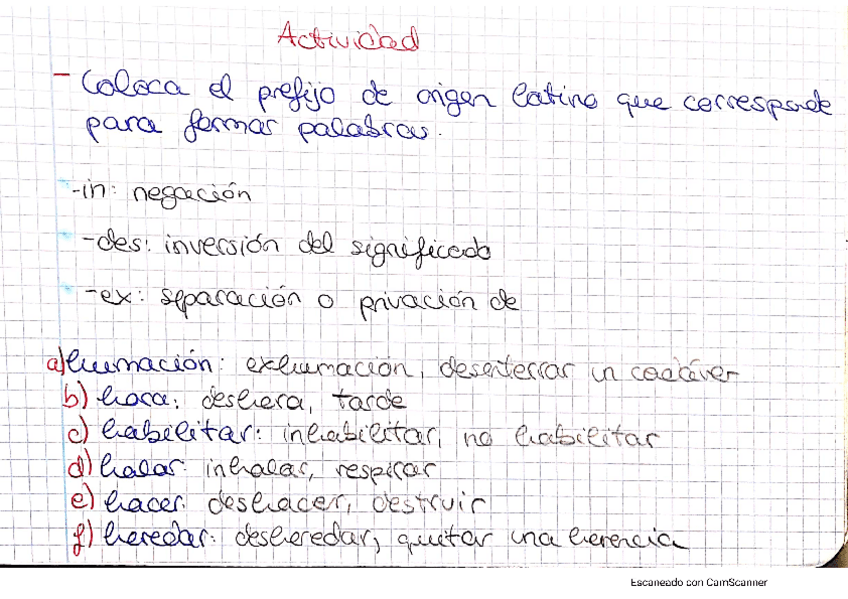 Actividad
- Coloca el prefijo de origen latino que corresponde
para formar palabras.
-in: negación
-des: inversión del significado
-ex: separación o privación de
a) humación: exhumación, desenterrar un cadáver
b) hora: deshora, tarde
c) habilitar: inhabilitar, no habilitar
d) halar: inhalar, respirar
e) hacer: deshacer, destruir
f) heredar: desheredar, quitar una herencia
Escaneado con CamScanner